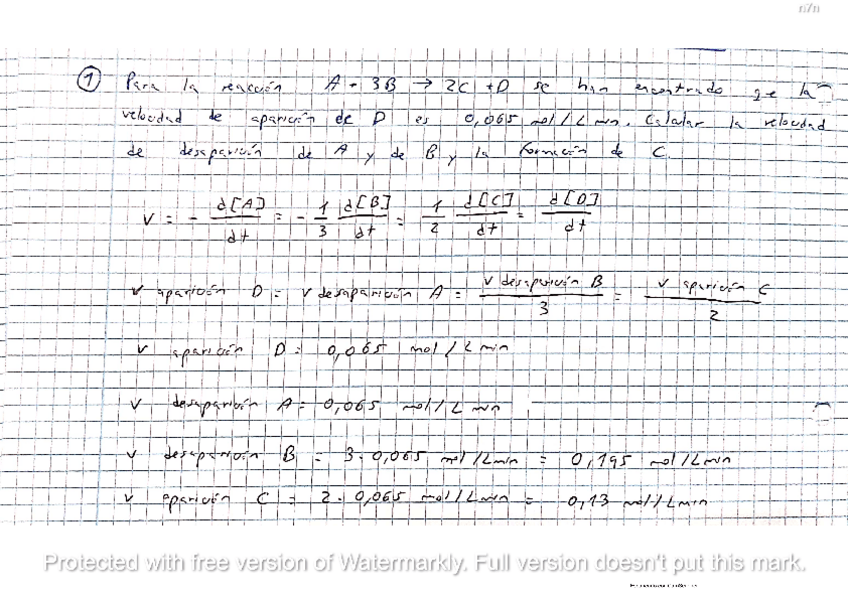 n7n
1 Para la reacción A + 3B → 2C + D se han encontrado que la
velocidad de aparición de D es 0,065 mol/L min. Calcular la velocidad
de desaparición de A y de B y la formación de C.
V = - d[A]/dt = - 1/3 d[B]/dt = 1/2 d[C]/dt = d[D]/dt
v aparición D = v desaparición A = v desaparición B / 3 = v aparición C / 2
v aparición D = 0,065 mol/L min
v desaparición A = 0,065 mol/L min
v desaparición B = 3 · 0,065 mol/L min = 0,195 mol/L min
v aparición C = 2 · 0,065 mol/L min = 0,13 mol/L min
Protected with free version of Watermarkly. Full version doesn't put this mark.